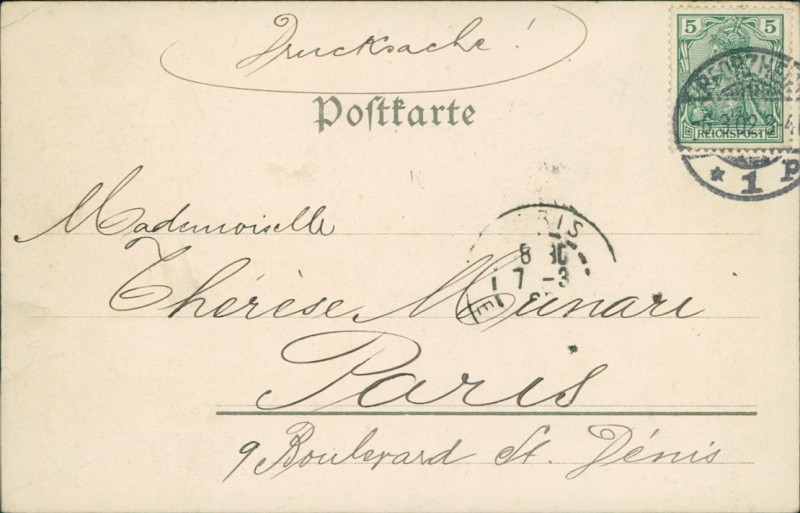 Drucksache!
5 5
REICHSPOST
PFORZHEIM
* 1 P
Postkarte
Mademoiselle
PARIS
8 30
7 -3
E
Thérèse Munari
Paris
9 Boulevard St. Dénis